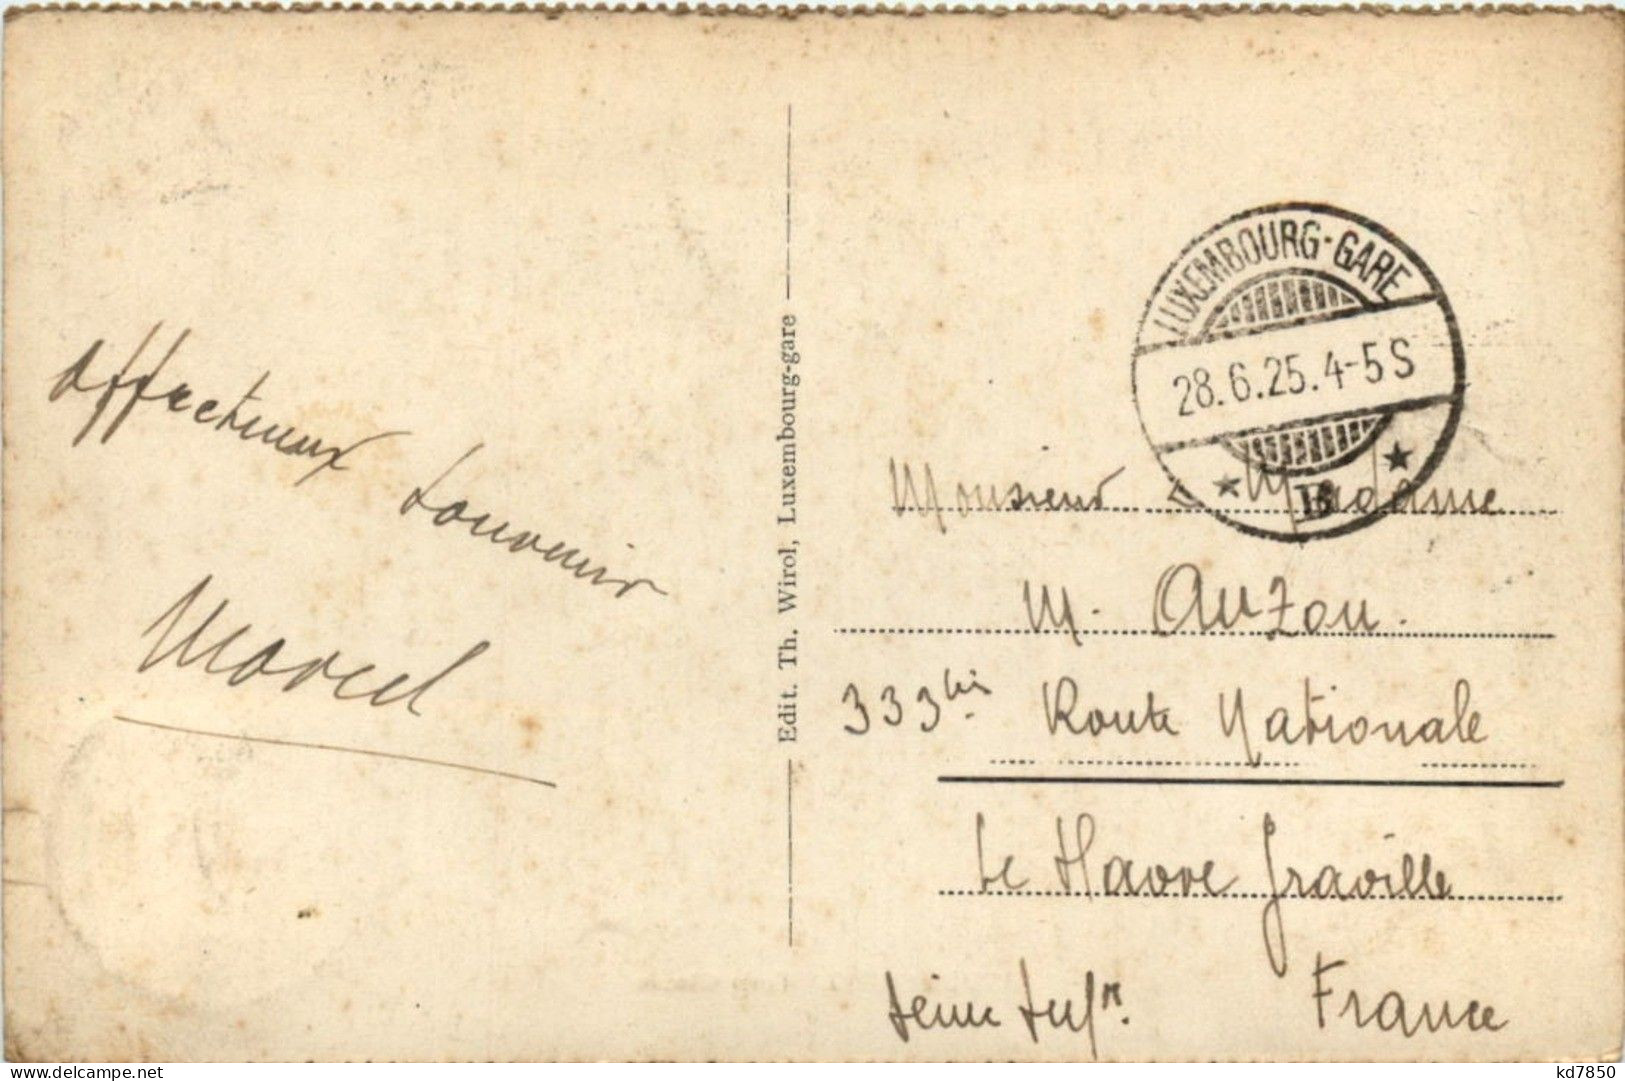 affectueux souvenir
Marcel
Edit. Th. Wirol, Luxembourg-gare
LUXEMBOURG-GARE
28.6.25.4-5S
Monsieur Madame
M. Auzou.
333bis Route Nationale
Le Havre Graville
Seine Infre. France
delcampe.net
kd7850